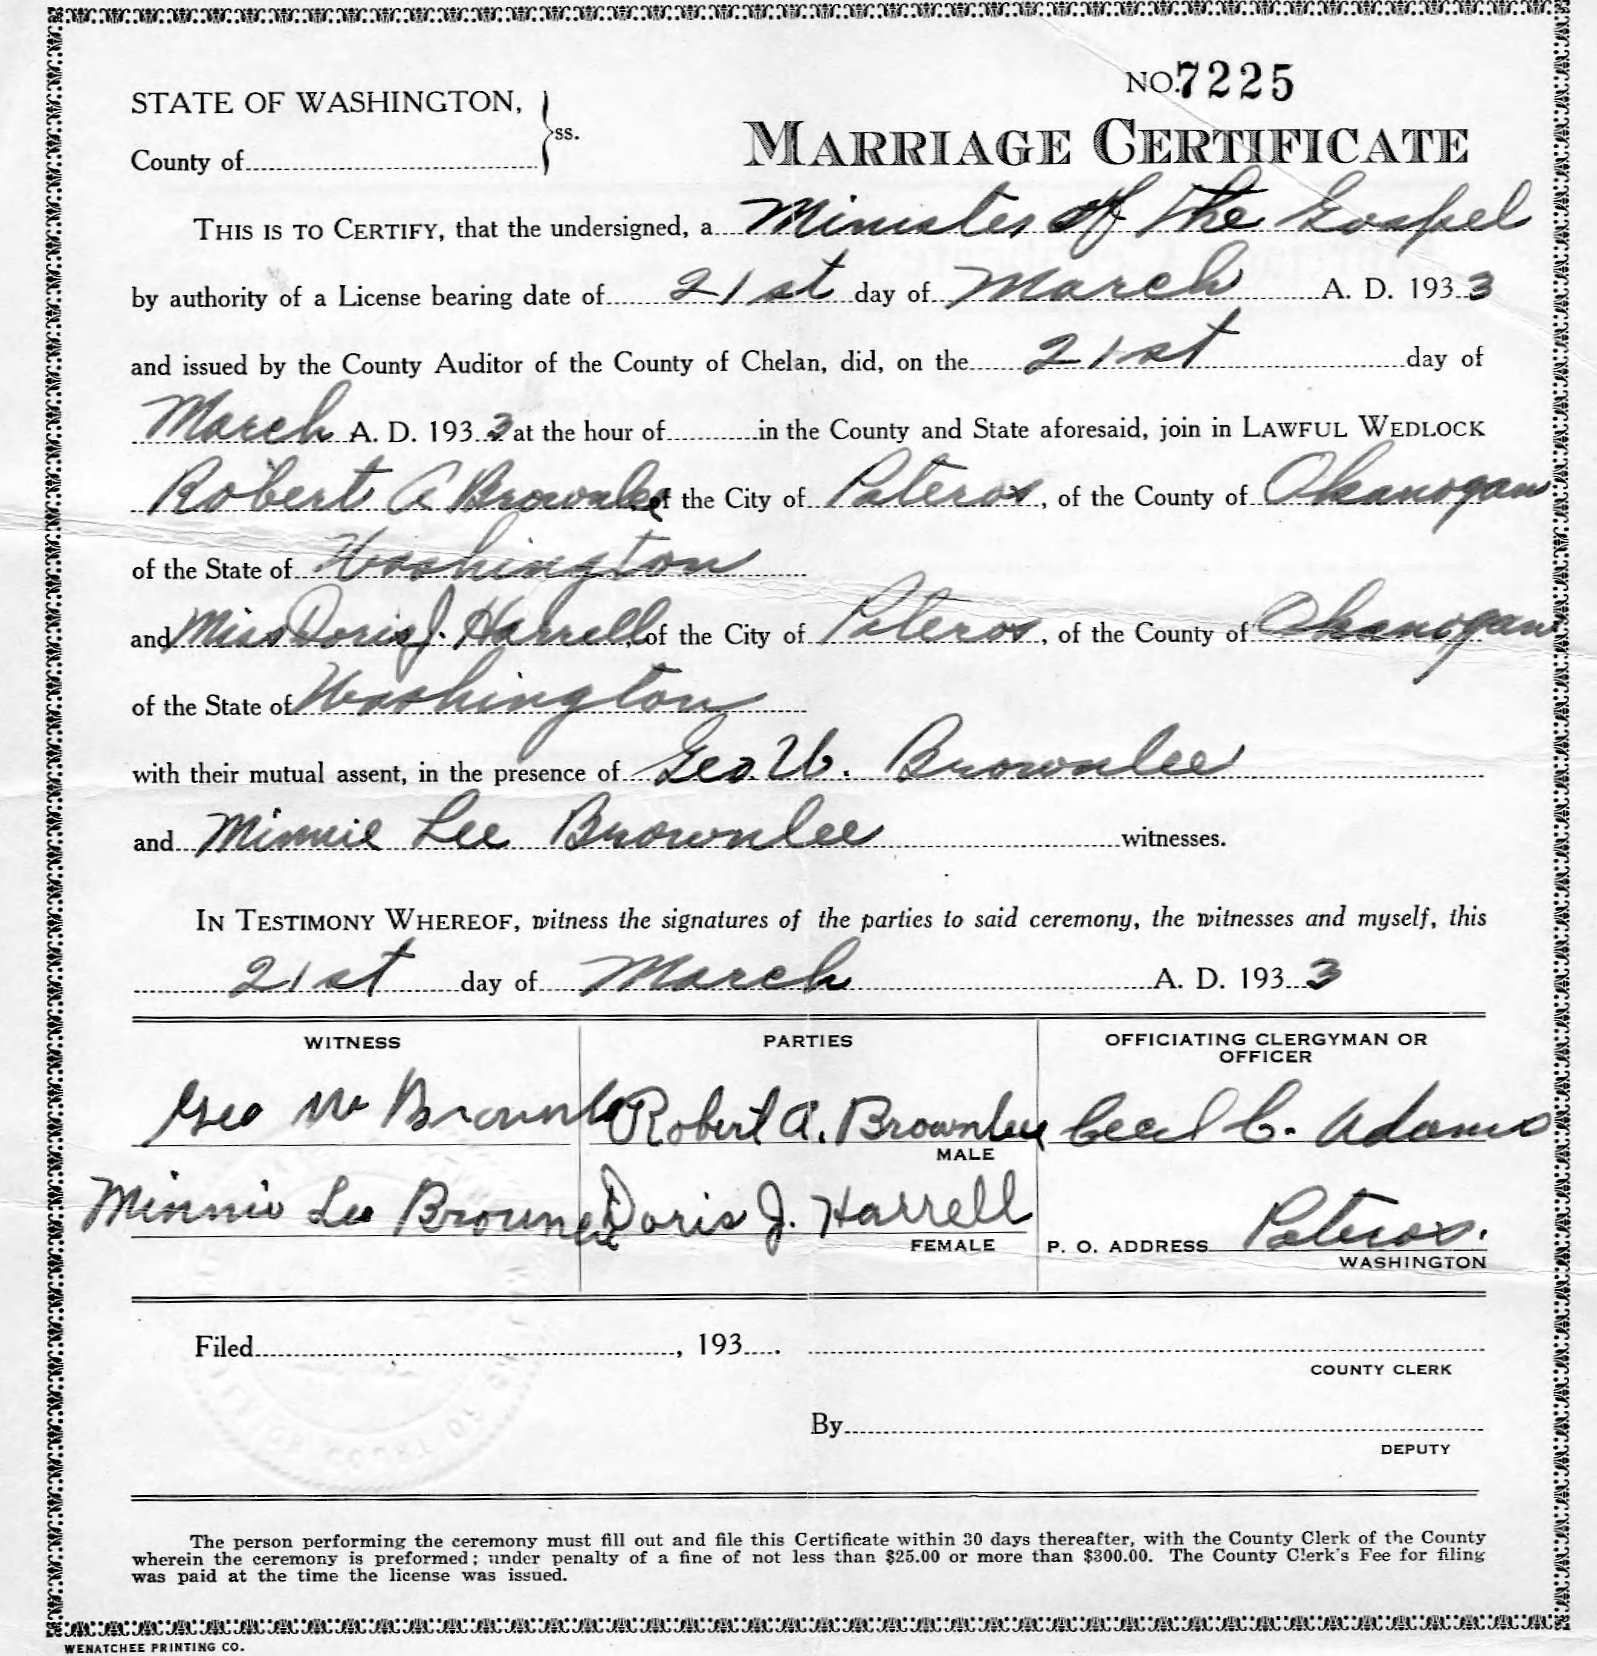 NO. 7225
STATE OF WASHINGTON, } ss.
County of
MARRIAGE CERTIFICATE
THIS IS TO CERTIFY, that the undersigned, a Minister of The Gospel
by authority of a License bearing date of 21st day of March A. D. 1933
and issued by the County Auditor of the County of Chelan, did, on the 21st day of
March A. D. 1933 at the hour of in the County and State aforesaid, join in LAWFUL WEDLOCK
Robert A Brownlee of the City of Pateros, of the County of Okanogan
of the State of Washington
and Miss Doris J. Harrell, of the City of Pateros, of the County of Okanogan
of the State of Washington
with their mutual assent, in the presence of Geo. W. Brownlee
and Minnie Lee Brownlee witnesses.
IN TESTIMONY WHEREOF, witness the signatures of the parties to said ceremony, the witnesses and myself, this
21st day of March A. D. 1933
WITNESS PARTIES OFFICIATING CLERGYMAN OR
OFFICER
Geo W Brownlee Robert A. Brownlee Cecil C. Adams
MALE
Minnie Lee Brownlee Doris J. Harrell P. O. ADDRESS Pateros.
FEMALE WASHINGTON
Filed , 193 .
COUNTY CLERK
By
DEPUTY
The person performing the ceremony must fill out and file this Certificate within 30 days thereafter, with the County Clerk of the County
wherein the ceremony is preformed; under penalty of a fine of not less than $25.00 or more than $300.00. The County Clerk's Fee for filing
was paid at the time the license was issued.
WENATCHEE PRINTING CO.